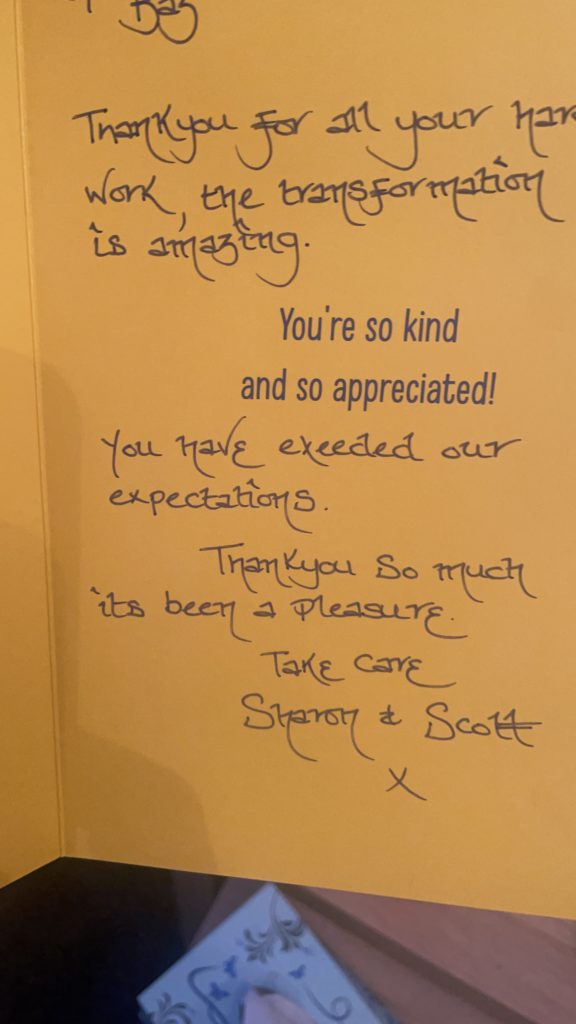 Baz
Thankyou for all your har
work, the transformation
is amazing.
You're so kind
and so appreciated!
You have exeeded our
expectations.
Thankyou so much
its been a pleasure.
Take care
Sharon & Scott
x